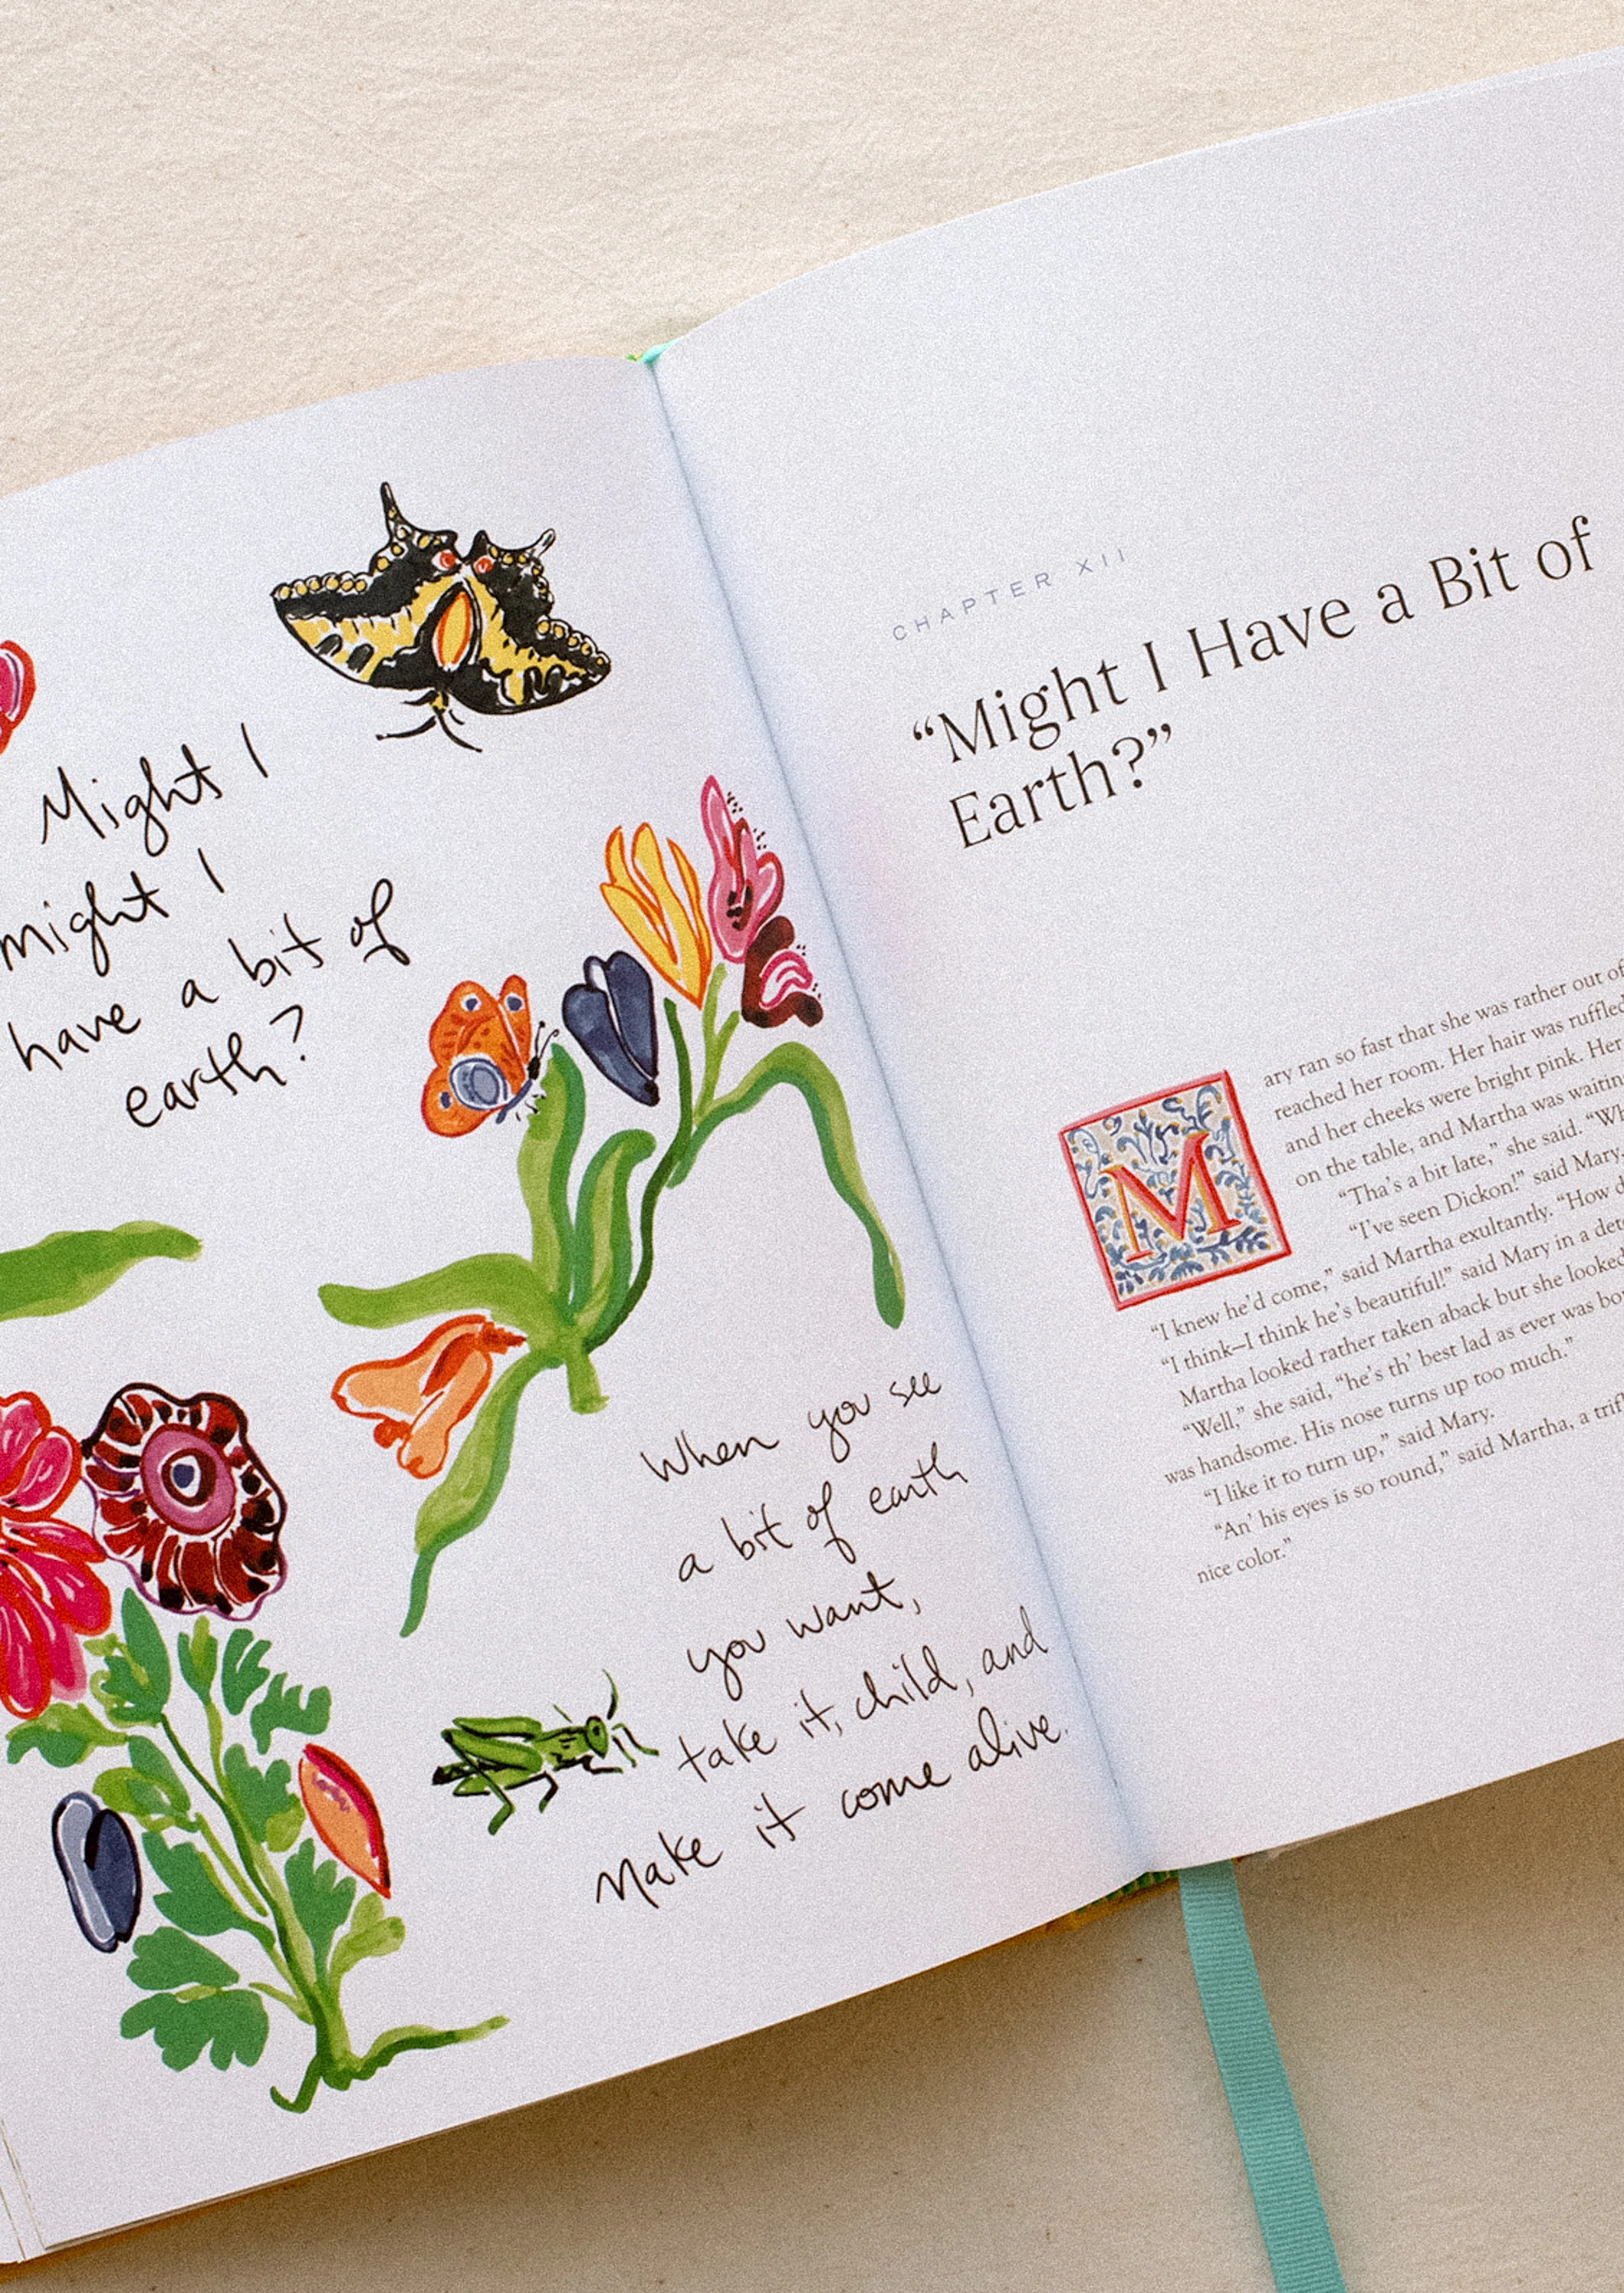 Might I
might I
have a bit of
earth?
When you see
a bit of earth
you want,
take it, child, and
make it come alive.
CHAPTER XII
“Might I Have a Bit of
Earth?”
M
ary ran so fast that she was rather out of
reached her room. Her hair was ruffled
and her cheeks were bright pink. Her
on the table, and Martha was waiting
“Tha’s a bit late,” she said.
“I’ve seen Dickon!” said Mary. “How
“I knew he’d come,” said Martha exultantly.
“I think—I think he’s beautiful!” said Mary in a
Martha looked rather taken aback but she looked
“Well,” she said, “he’s th’ best lad as ever was
was handsome. His nose turns up too much.”
“I like it to turn up,” said Mary.
“An’ his eyes is so round,” said Martha, a
nice color.”